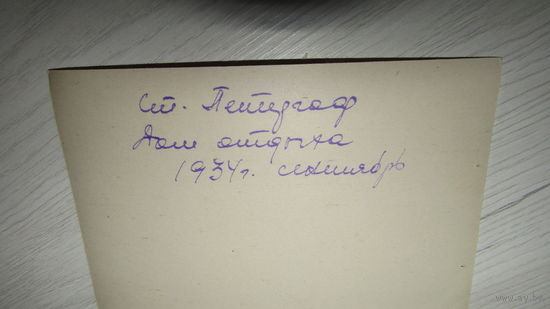 Ст. Петергоф
Дом отдыха
1934 г. сентябрь
www.ay.by